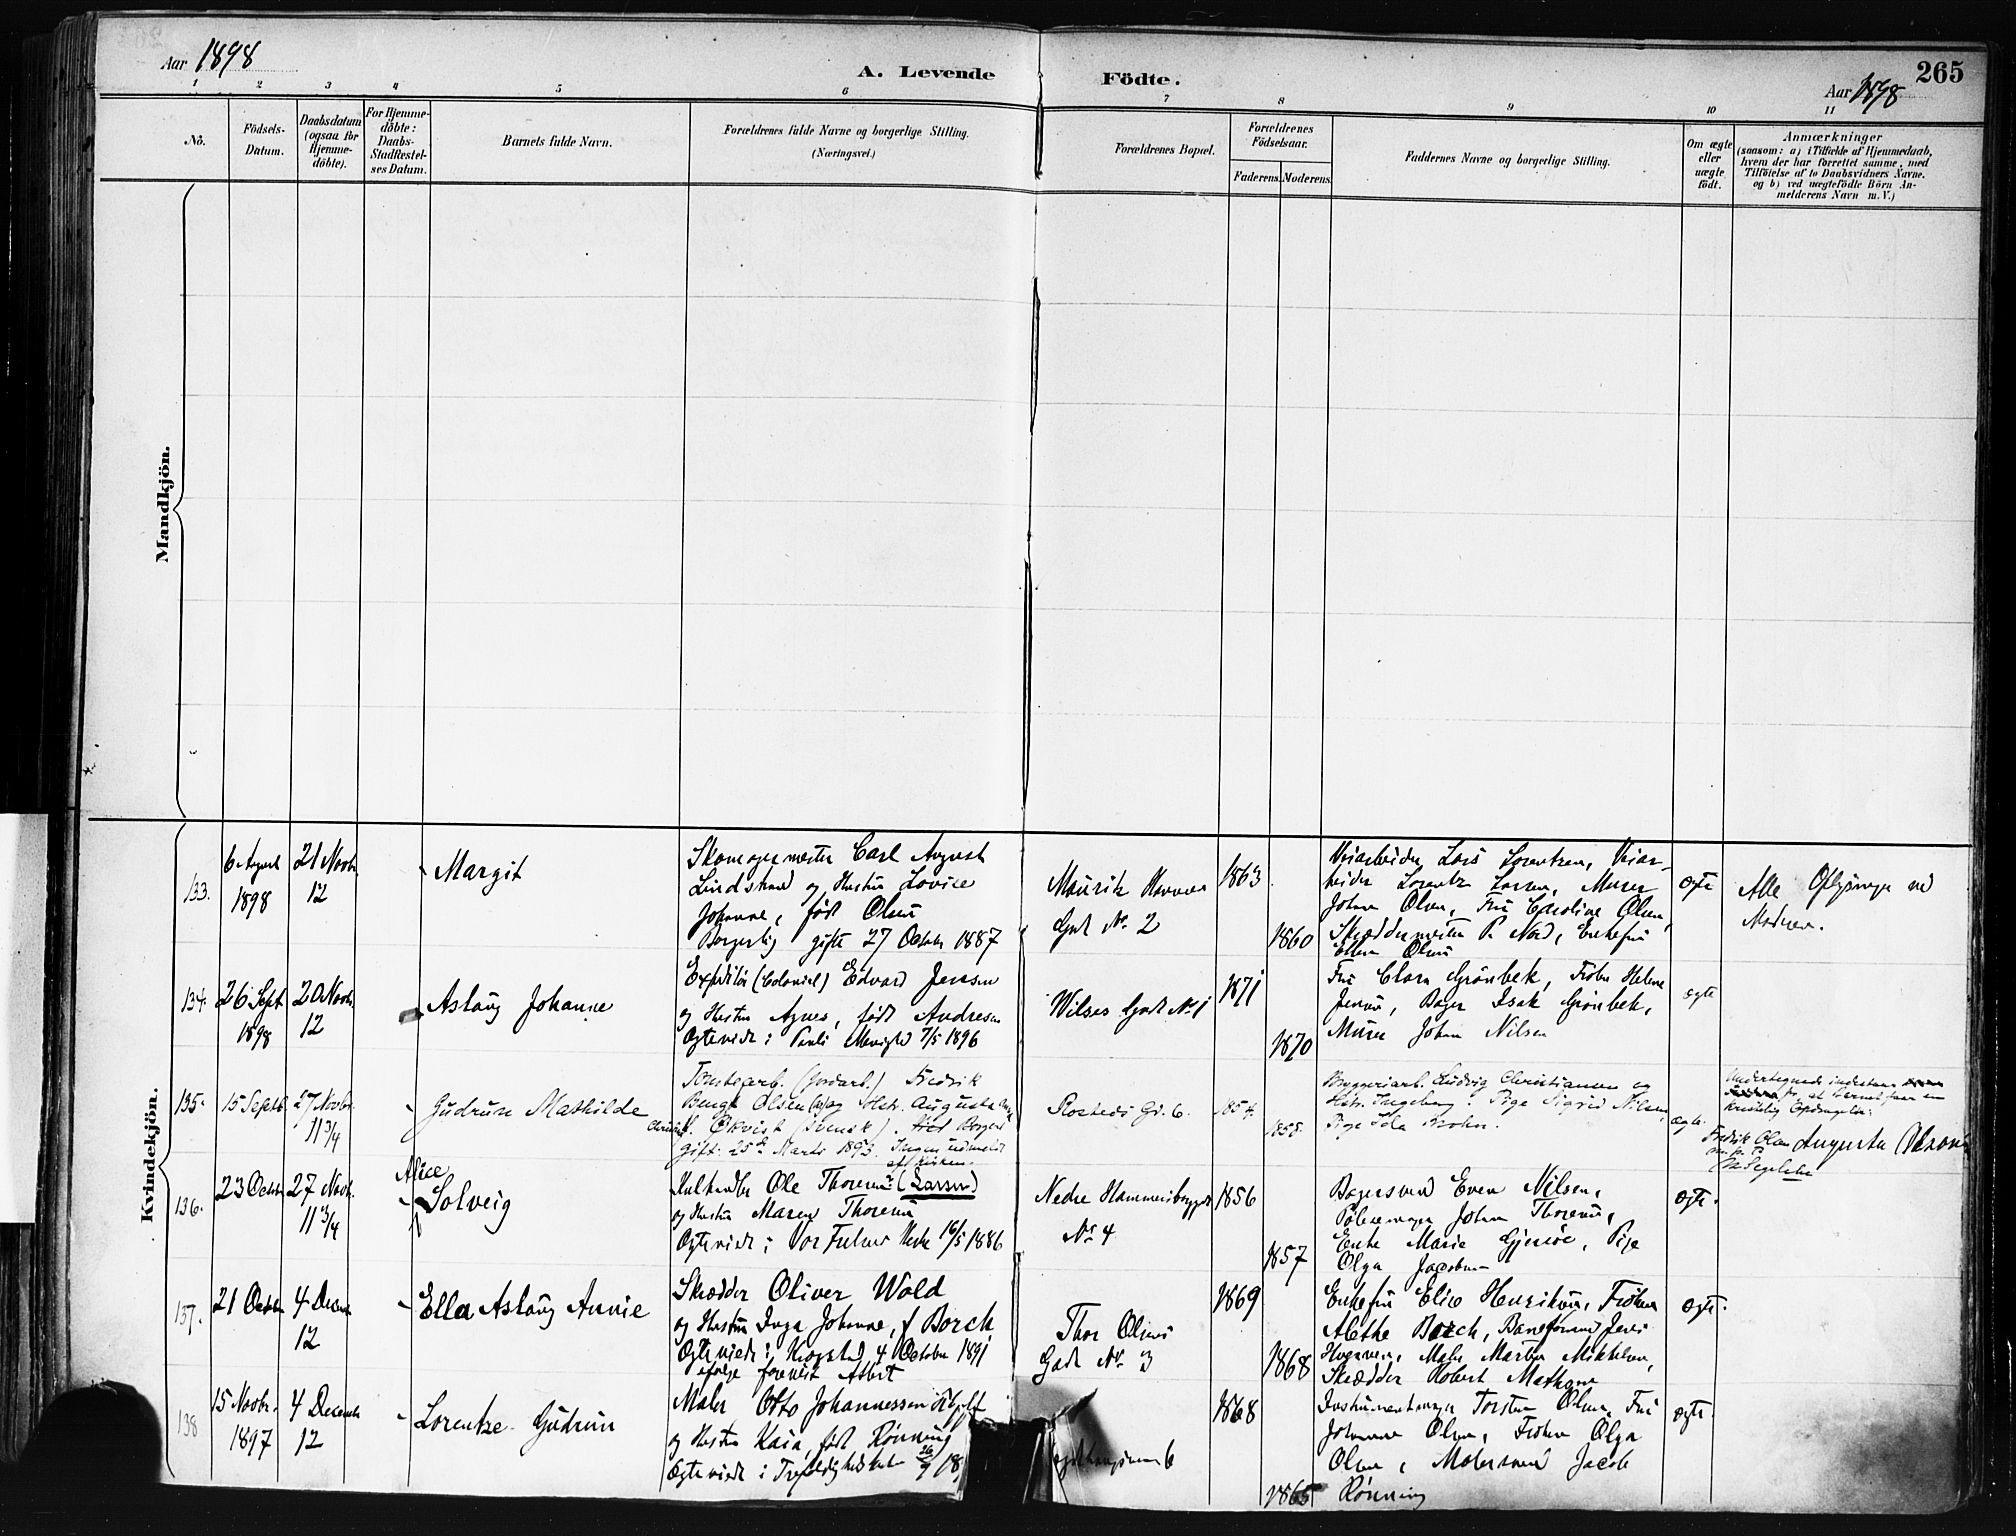 Aar 1898
A. Levende Födte.
265
Aar 1898
1 2 3 4 5 6 7 8 9 10 11
No.
Födsels-
Datum.
Daabsdatum
(ogsaa for
Hjemme-
döbte).
For Hjemme-
döbte:
Daabs-
Stadfæstel-
ses Datum.
Barnets fulde Navn.
Forældrenes fulde Navne og borgerlige Stilling.
(Næringsvei.)
Forældrenes Bopæl.
Forældrenes
Födselsaar.
Faderens. Moderens.
Faddernes Navne og borgerlige Stilling.
Om ægte
eller
uægte
födt.
Anmærkninger
(saasom: a) i Tilfælde af Hjemmedaab,
hvem der har forrettet samme, med
Tilföielse af to Daabsvidners Navne.
og b) ved uægtefödte Börn An-
melderens Navn m. V.)
Mandkjön.
Kvindekjön.
133.
6 August
1898
21 Novbr.
12
Margit
Skomagermester Carl August
Lindstrand og Hustru Lovise
Johanne, født Olsen
Borgerlig gifte 27 October 1887
Gade No. 2
1863
1860
Lars Lorentzen,
Lorentz Larsen, Murer
Johan Olsen, Fru Caroline Olsen,
Skræddermester P. Nord, Enkefru
Ellen Olsen
ægte
Alle Oplysninger ved
Moderen.
134.
26 Sept.
1898
20 Novbr.
12
Aslaug Johanne
Expeditør (Colonial) Edvard Jensen
og Hustru Agnes, født Andresen
Ægteviede i Pauli Menighed 7/5 1896
Wilses Gade No 1
1871
1870
Fru Clara Grönbek, Frøken Helene
Jensen, Bager Isak Grönbek,
Murer Johan Nilsen
ægte
135.
15 Septb.
27 Novbr.
11 3/4
Gudrun Mathilde
Tomtearb. (Jordarb.) Fredrik
Bengt Olsen og Hstr. Augusta
Økvist (svensk).
gift: 25de Marts 1893. Ingen udmeldt
af Kirken.
Rosteds Gd. 6.
1854.
1858.
Bryggeriarb. Ludvig Christiansen og
Hstr. Ingeborg. Pige Sigrid Nilsen,
Pige Ida Krohn.
ægte.
Undertegnede indestaar
for, at Barnet faar en
kristelig Opdragelse:
Fredrik Olsen Augusta Olsson
m. p. P.
136.
23 Octbr.
27 Novb.
11 3/4
Alice
Solveig
Ole Thoresen (Larsen)
og Hustru Maren Thoresen
Ægteviede i Vor Frelsers Kirke 16/5 1886
Nedre Hammersborggade
No. 4
1856
1857
Bagersvend Even Nilsen,
Johan Thoresen,
Enke Marie Gjersøe, Pige
Olga Jacobsen
ægte.
137.
21 Octbr.
4 Decem
12
Ella Aslaug Annie
Skrædder Oliver Wold
og Hustru Inga Johanne, f Borch
Ægteviede i Krogstad 4 October 1891
ifølge forevist Attest
Thor Olsens
Gade No. 3
1869
1868
Enkefru Elise Henriksen, Frøken
Alethe Borch, Baneformand Jens
Maler Martin Mikkelsen,
Skrædder Robert
ægte.
138
15 Novbr.
1897
4 December
12
Lorentze Gudrun
Maler Otto Johannessen
og Hustru Kaia, født Rønning
Ægteviede i Trefoldighedskirken 26/9 18
6
1868
1865
Instrumentmager Torsten Olsen, Fru
Johanne Olsen, Frøken Olga
Olsen, Malersvend Jacob
Rønning
ægte.